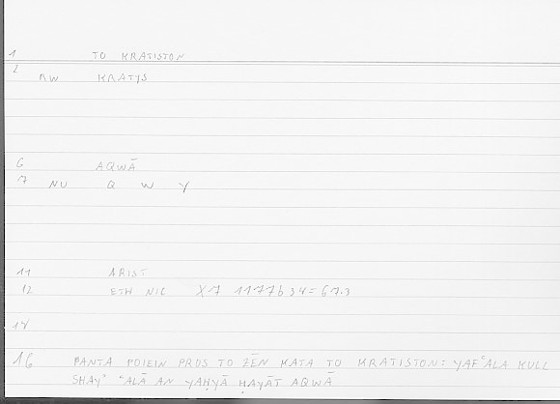 1 TO KRATISTON
2 RW KRATYS
6 AQWĀ
7 NU Q W Y
11 ARIST
12 ETH NIC X7 1177b 34 = 67.3
14
16 PANTA POIEIN PROS TO ZĒN KATA TO KRATISTON: YAFʿALA KULL
SHAYʾ ʿALĀ AN YAḤYĀ ḤAYĀT AQWĀ